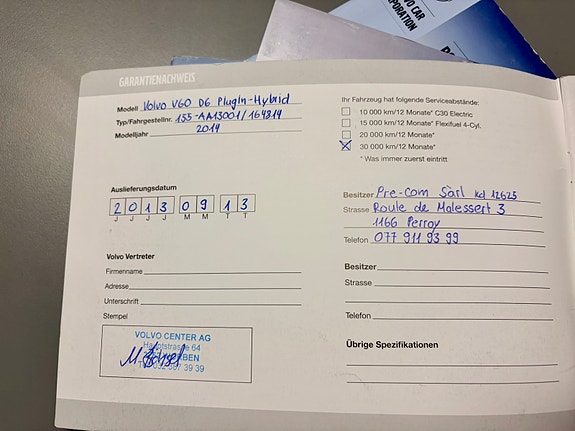 VO CAR
RPORATION
GARANTIENACHWEIS
Modell Volvo V60 D6 PlugIn-Hybrid
Typ/Fahrgestellnr. 155-AA13001/164314
Modelljahr 2014
Auslieferungsdatum
2 0 1 3 0 9 1 3
J J J J M M T T
Volvo Vertreter
Firmenname
Adresse
Unterschrift
Stempel
VOLVO CENTER AG
Hauptstrasse 64
39 39
Ihr Fahrzeug hat folgende Serviceabstände:
10 000 km/12 Monate* C30 Electric
15 000 km/12 Monate* Flexifuel 4-Cyl.
20 000 km/12 Monate*
30 000 km/12 Monate*
* Was immer zuerst eintritt
Besitzer Pre-Com Sàrl kd 12625
Strasse Route de Malessert 3
1166 Perroy
Telefon 077 911 93 99
Besitzer
Strasse
Telefon
Übrige Spezifikationen